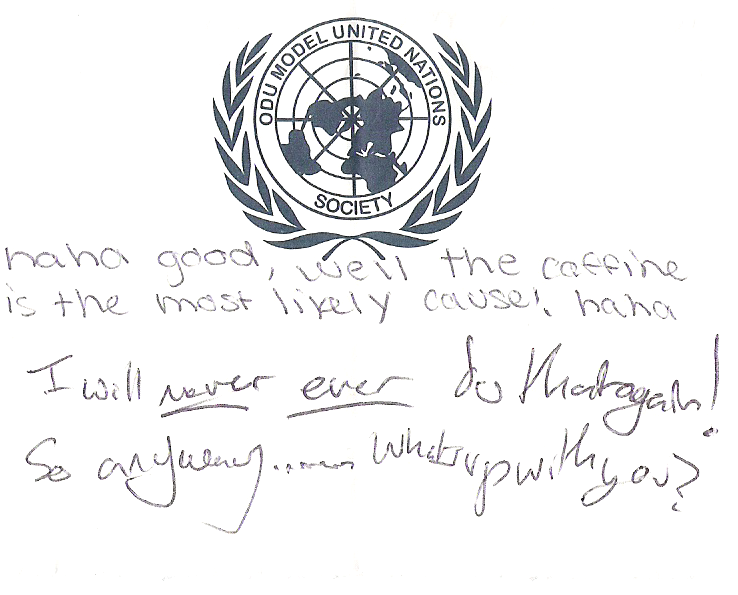 ODU MODEL UNITED NATIONS
SOCIETY
haha good, well the caffine
is the most likely cause!. haha
I will never ever do that again!
So anyway....... whats up with you?